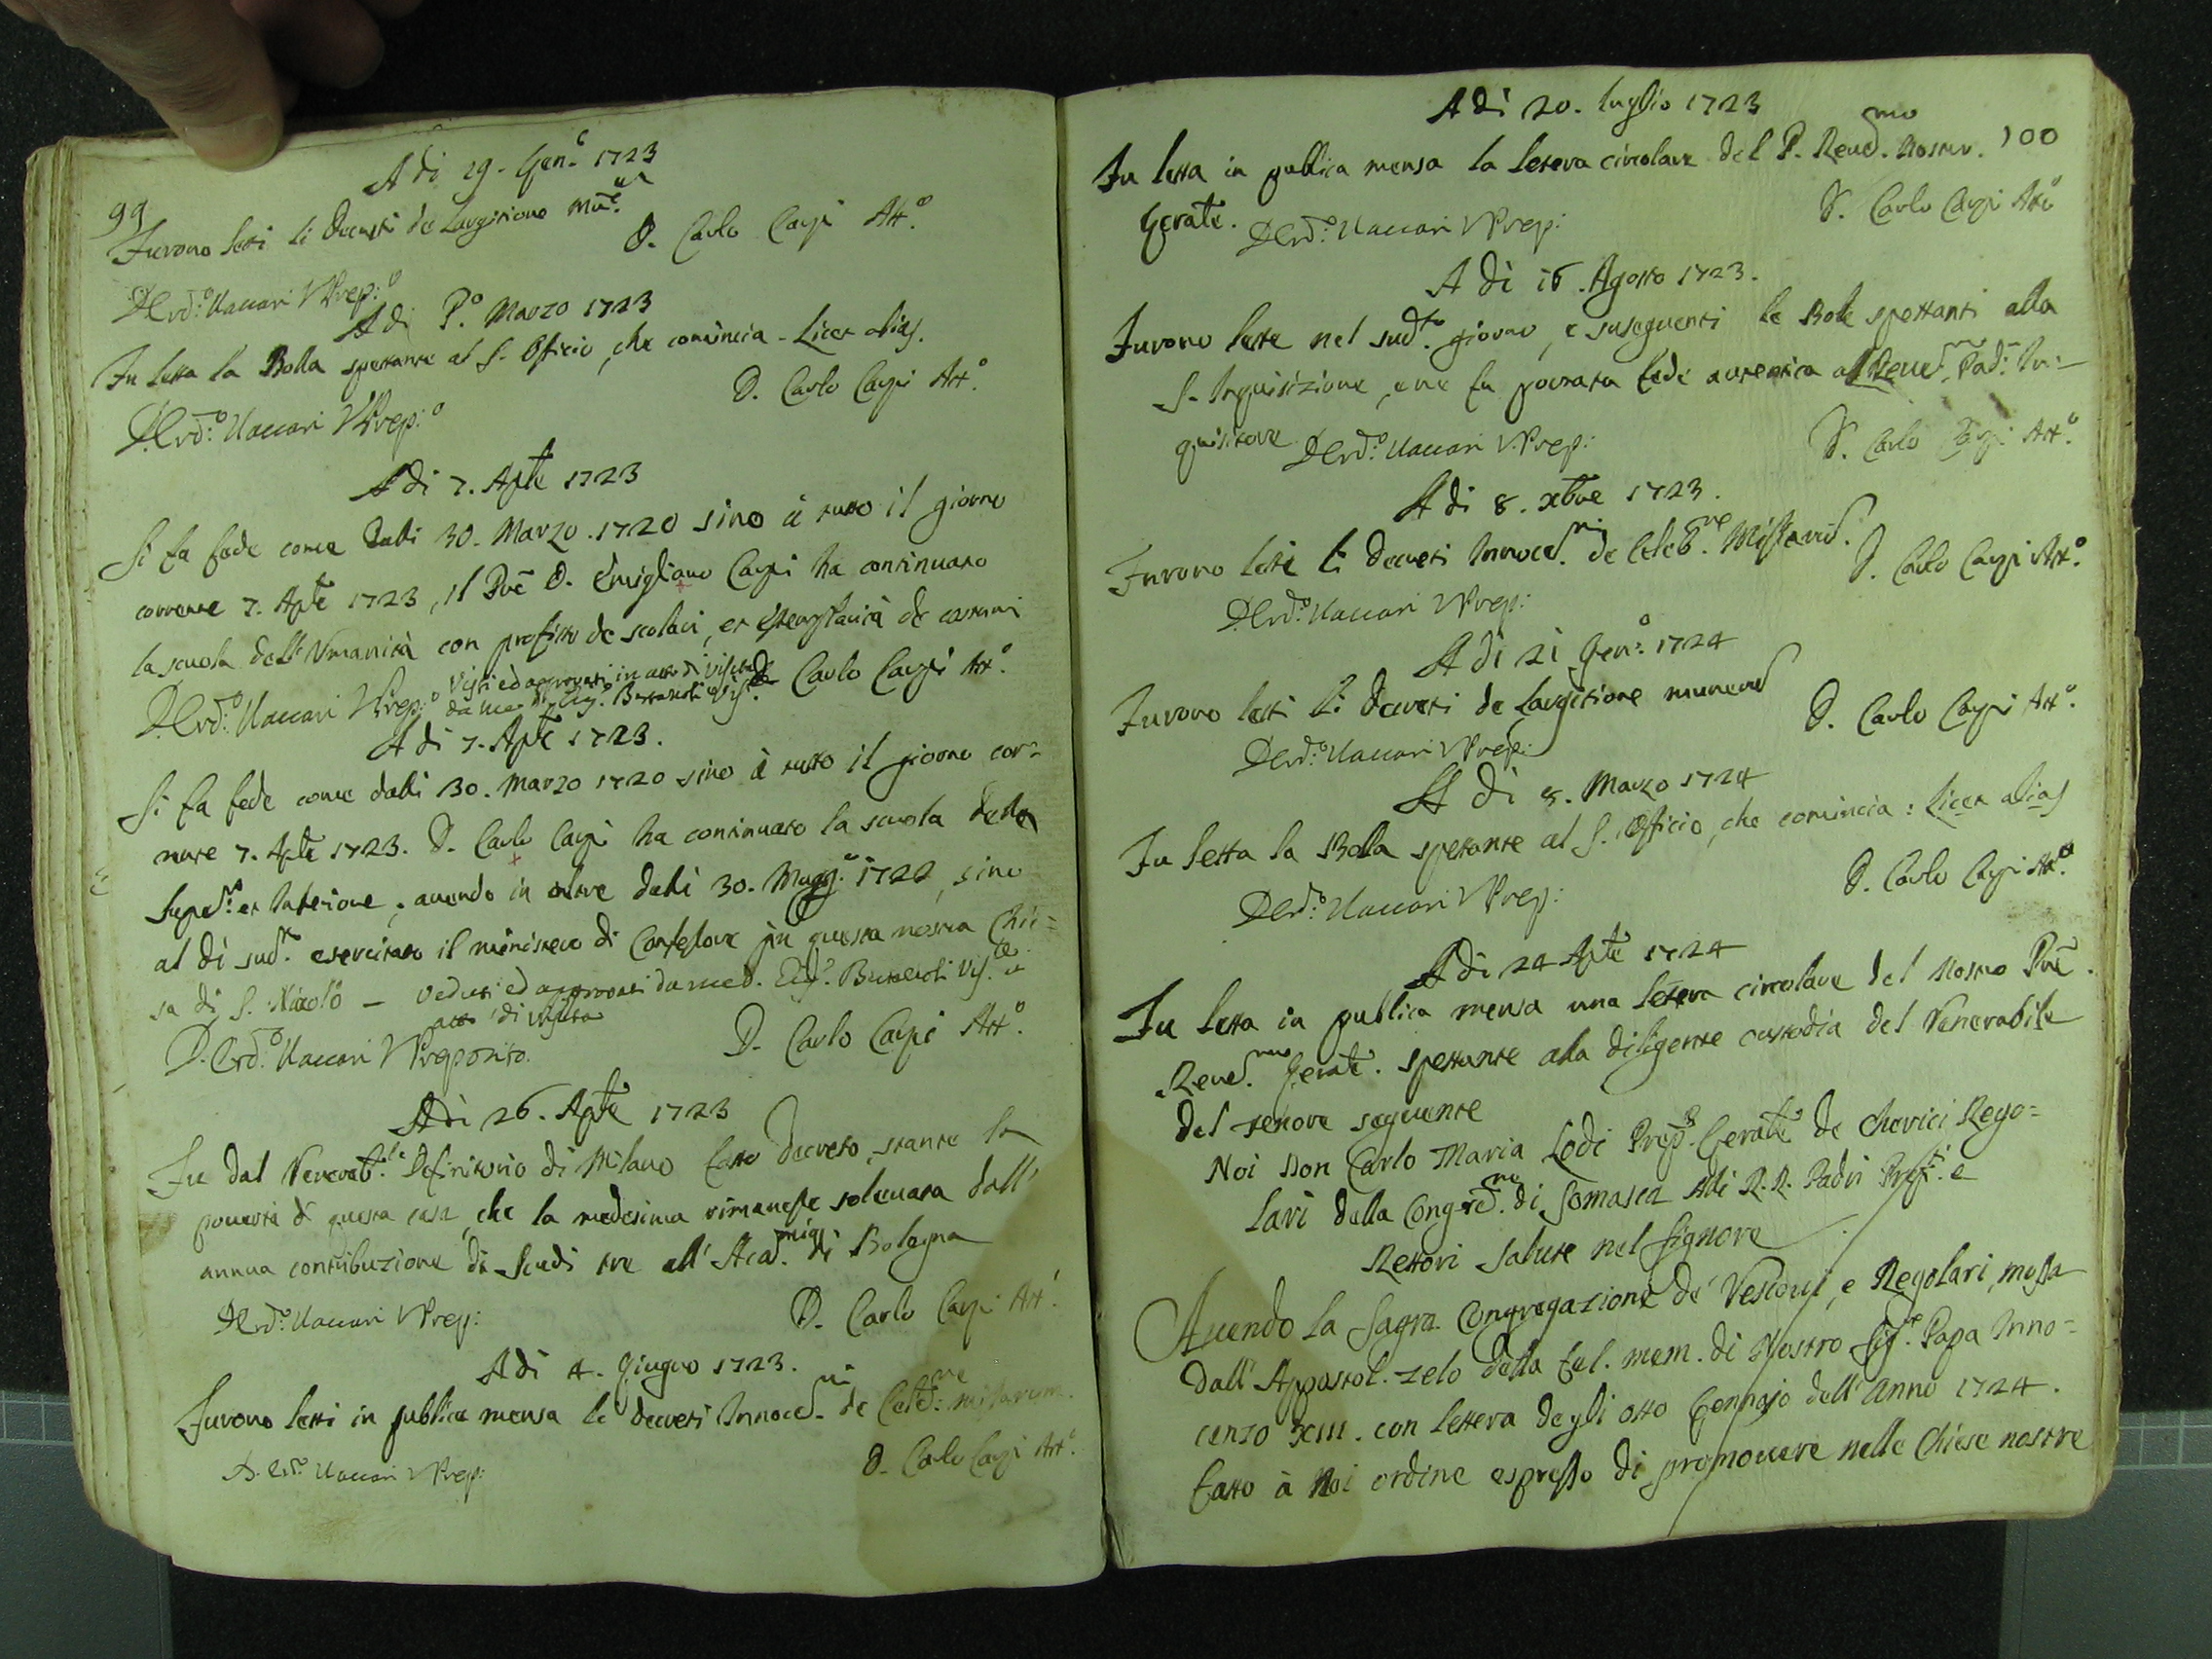 99
A di 29. Gen.o 1723
Furono letti li Decreti de Largitione Mun.
D. Carlo Carpi Att.o
D. Ord.o Vaccari VPrep.o
A di P.o Marzo 1723
Fu letta la Bolla spettante al S. Officio, che comincia - Licet alias.
D. Carlo Carpi Att.o
D. Ord.o Vaccari VPrep.o
A di 7. Aple 1723
Si fa fede come dalli 30. Marzo. 1720 sino à tutto il giorno
corrente 7. Aple 1723, il Pre D. Emigliano Carpi ha continuato
la scuola dell'Umanità con profitto de scolari, et esemplarità de costumi
Visti ed approvati in atto di Visita
da me D. Eug.o Vis.r
D. Carlo Carpi Att.o
D. Ord.o Vaccari VPrep.o
A di 7. Aple 1723.
Si fa fede come dalli 30. Marzo 1720 sino à tutto il giorno cor=
rente 7. Aple 1723. D. Carlo Carpi ha continuato la scuola della
Super.re et Inferiore; avendo in oltre dalli 30. Magg.o 1722, sino
al di sud.o esercitato il ministero di Confessore in questa nostra Chie=
sa di S. Nicolò - Veduti ed approvati da me D. Eug.o Vis.re in
atto di Visita
D. Ord.o Vaccari VPreposito.
D. Carlo Carpi Att.o
A di 26. Aple 1723
Fu dal Venerab.le Definitorio di Milano fatto Decreto, stante la
povertà di questa casa, che la medesima rimanesse solevata dall'
annua contribuzione di Scudi tre all' Acad.mia di Bologna
D. Ord.o Vaccari VPrep:
D. Carlo Carpi Att.o
A di 4. Giugno 1723.
Furono letti in publica mensa li decreti Innoced.ni de Celeb.ne missarum.
D. Ord.o Vaccari VPrep:
D. Carlo Carpi Att.o
100
A di 20. luglio 1723
Fu letta in publica mensa la lettera circolare del P. Revd.mo Nostro.
Gerale.
D. Ord.o Vaccari VPrep:
D. Carlo Carpi Att.o
A di 16. Agosto 1723.
Furono lette nel sud.to giorno, e suseguenti le Bole spettanti alla
S. Inquisizione, e ne fu portata fede autentica al Revd.mo Pad.e In=
quisitore
D. Ord.o Vaccari V.Prep:
D. Carlo Carpi Att.o
A di 8. xbre 1723.
Furono letti li Decreti Innoced.ni de Celeb.ne Missarum.
D. Carlo Carpi Att.o
D. Ord.o Vaccari VPrep:
A di 21 Gen.o 1724
Furono letti li Decreti de Largitione munerum
D. Carlo Carpi Att.o
D. Ord.o Vaccari VPrep:
A di 8. Marzo 1724
Fu letta la Bolla spetante al S. Officio, che comincia: Licet alias
D. Carlo Carpi Att.o
D. Ord.o Vaccari VPrep:
A di 24 Aple 1724
Fu letta in publica mensa una lettera circolare del Nostro Pre.
Revd.mo Gerale. spettante alla diligente custodia del Venerabile
del tenore seguente
Noi Don Carlo Maria Lodi Prep.to Gerale de Cherici Rego=
lari della Congreg.ne di Somasca Alli R.R. Padri Prep.ti e
Rettori salute nel Signore
Avendo la Sagra Congregazione de' Vescovi, e Regolari, mossa
dall' Appostol. zelo della fel. mem. di Nostro Sig.re Papa Inno=
cenzo XIII. con lettera degli otto Gennajo dell'anno 1724.
fatto à Noi ordine espresso di promovere nelle Chiese nostre